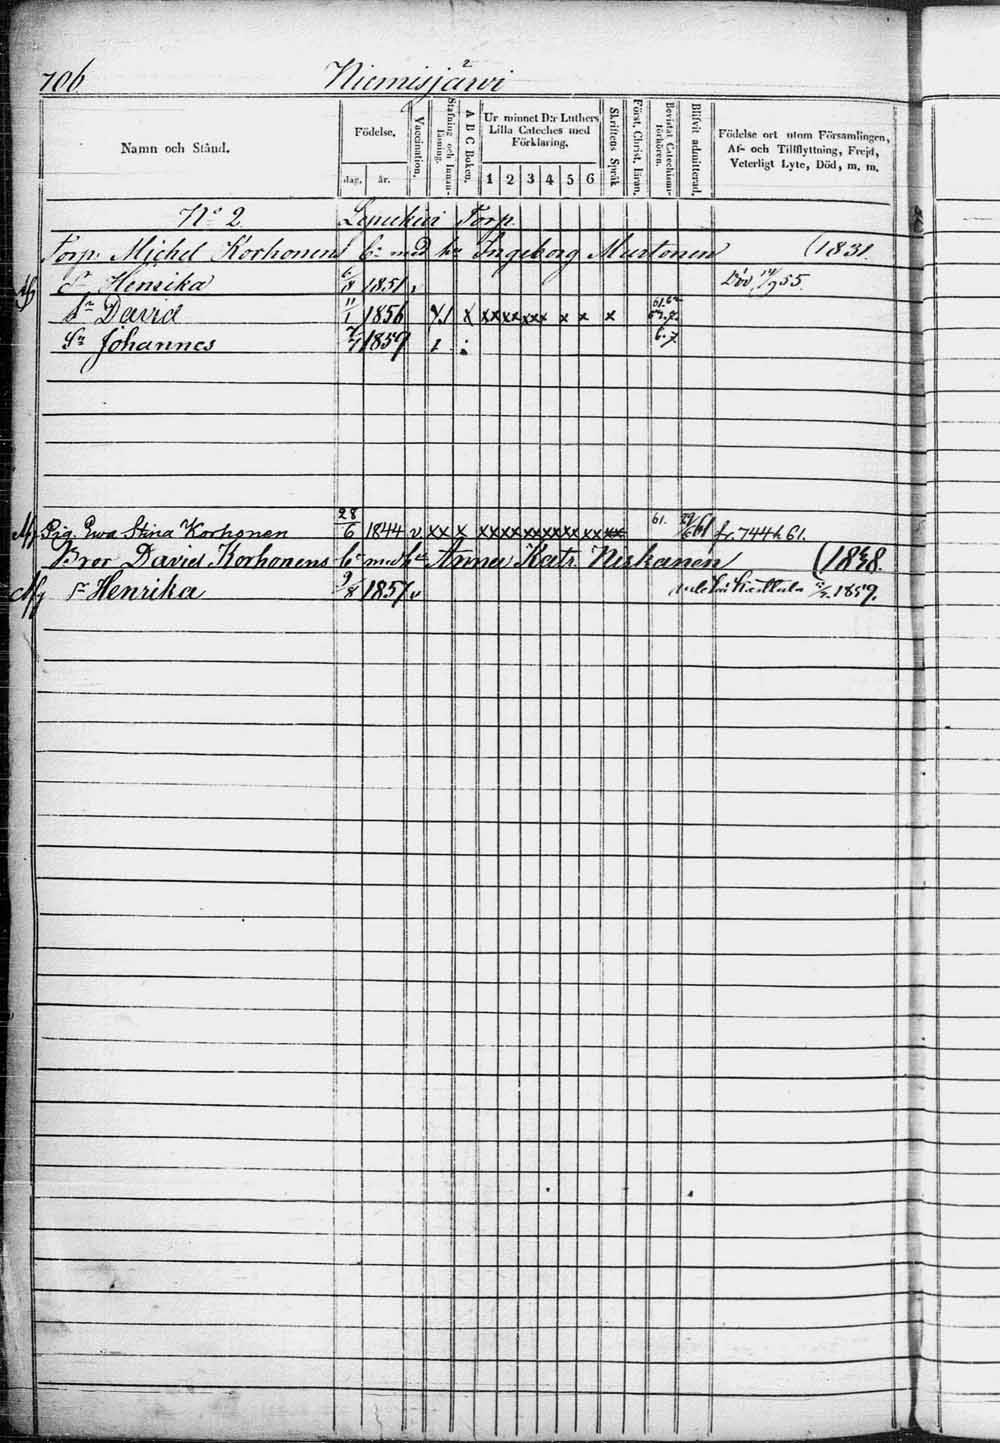 706 Niemisjärvi 2
Namn och Stånd.
Födelse,
dag, år.
Vaccination.
Stafning och Innanläsning.
A B C Boken.
Ur minnet D:r Luthers
Lilla Cateches med
Förklaring,
1 2 3 4 5 6
Skriftens Språk
Först. Christ. läran,
Bevistat Catechismiförhören.
Blifvit admitterad,
Födelse ort utom Församlingen,
Af- och Tillflyttning, Frejd,
Veterligt Lyte, Död, m. m.
N:o 2 Torp.
Torp. Michel Korhonens Br med hu Ingeborg Mustonen (1831.
Dr Henrika 6/8 1851 Död 14/9 55.
Sn David 11/1 1856 x x x x x x x x x x x
Sn Johannes 7/7 1859 1 6.7
Pig. Ewa Stina Korhonen 28/6 1844 v xx x xx xx xx xx xx xx 61. 29/6 61 fr. 744 h 61.
Bror David Korhonens Br med hu Anna Katr. Niskanen (1838.
Dr Henrika 9/8 1857 v 1859.